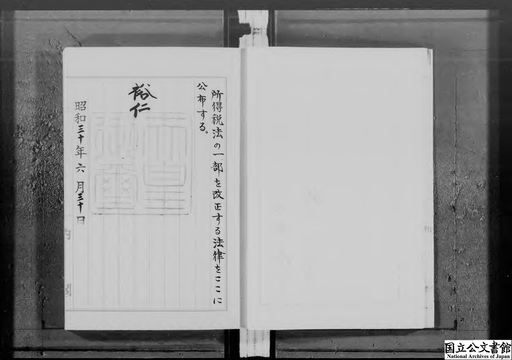 所得税法の一部を改正する法律をここに
公布する。
裕仁
昭和三十年六月三十日
国立公文書館
National Archives of Japan